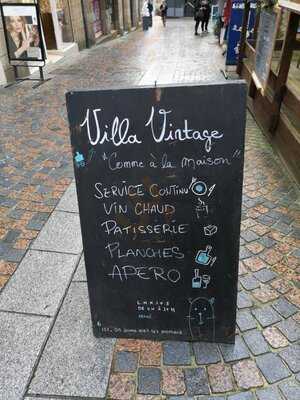 Villa Vintage
"Comme à la maison"
SERVICE CONTINU
VIN CHAUD
PATISSERIE
PLANCHES
APERO